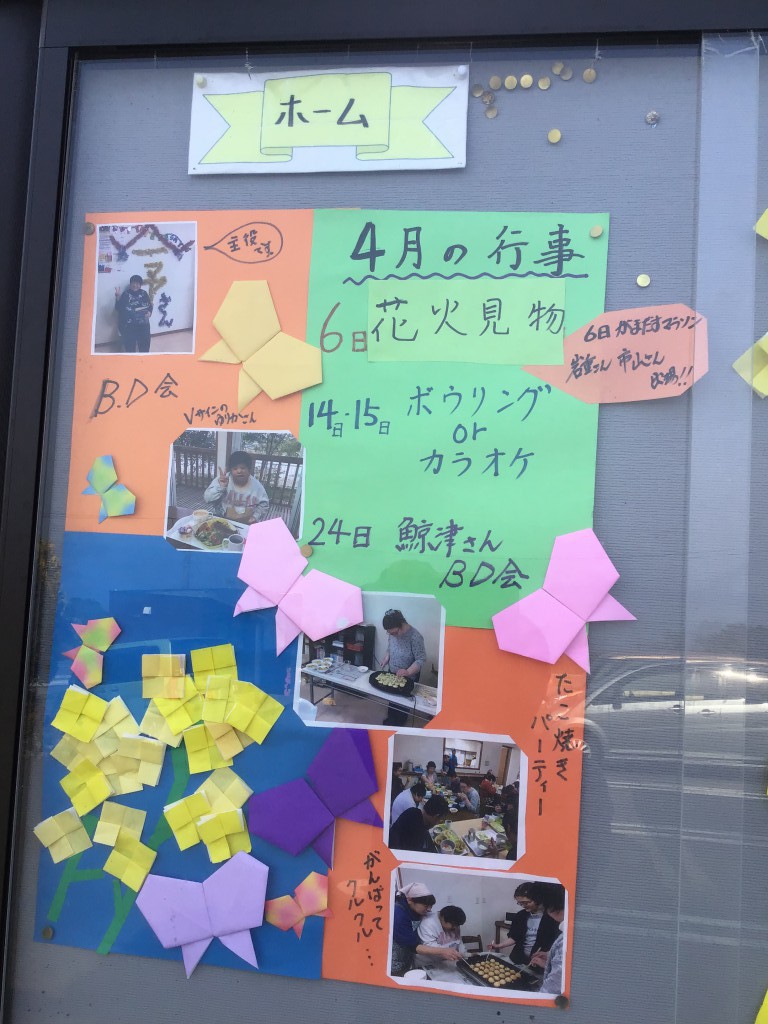 ホーム
主役
です
さん
B.D会
Vサインの
ゆりかさん
4月の行事
6日 花火見物
6日 がまだすマラソン
岩室さん 市山さん
出場!!
14日・15日 ボウリング
or
カラオケ
24日 鯨津さん
BD会
たこ焼き
パーティー
がんばって
クルクル…